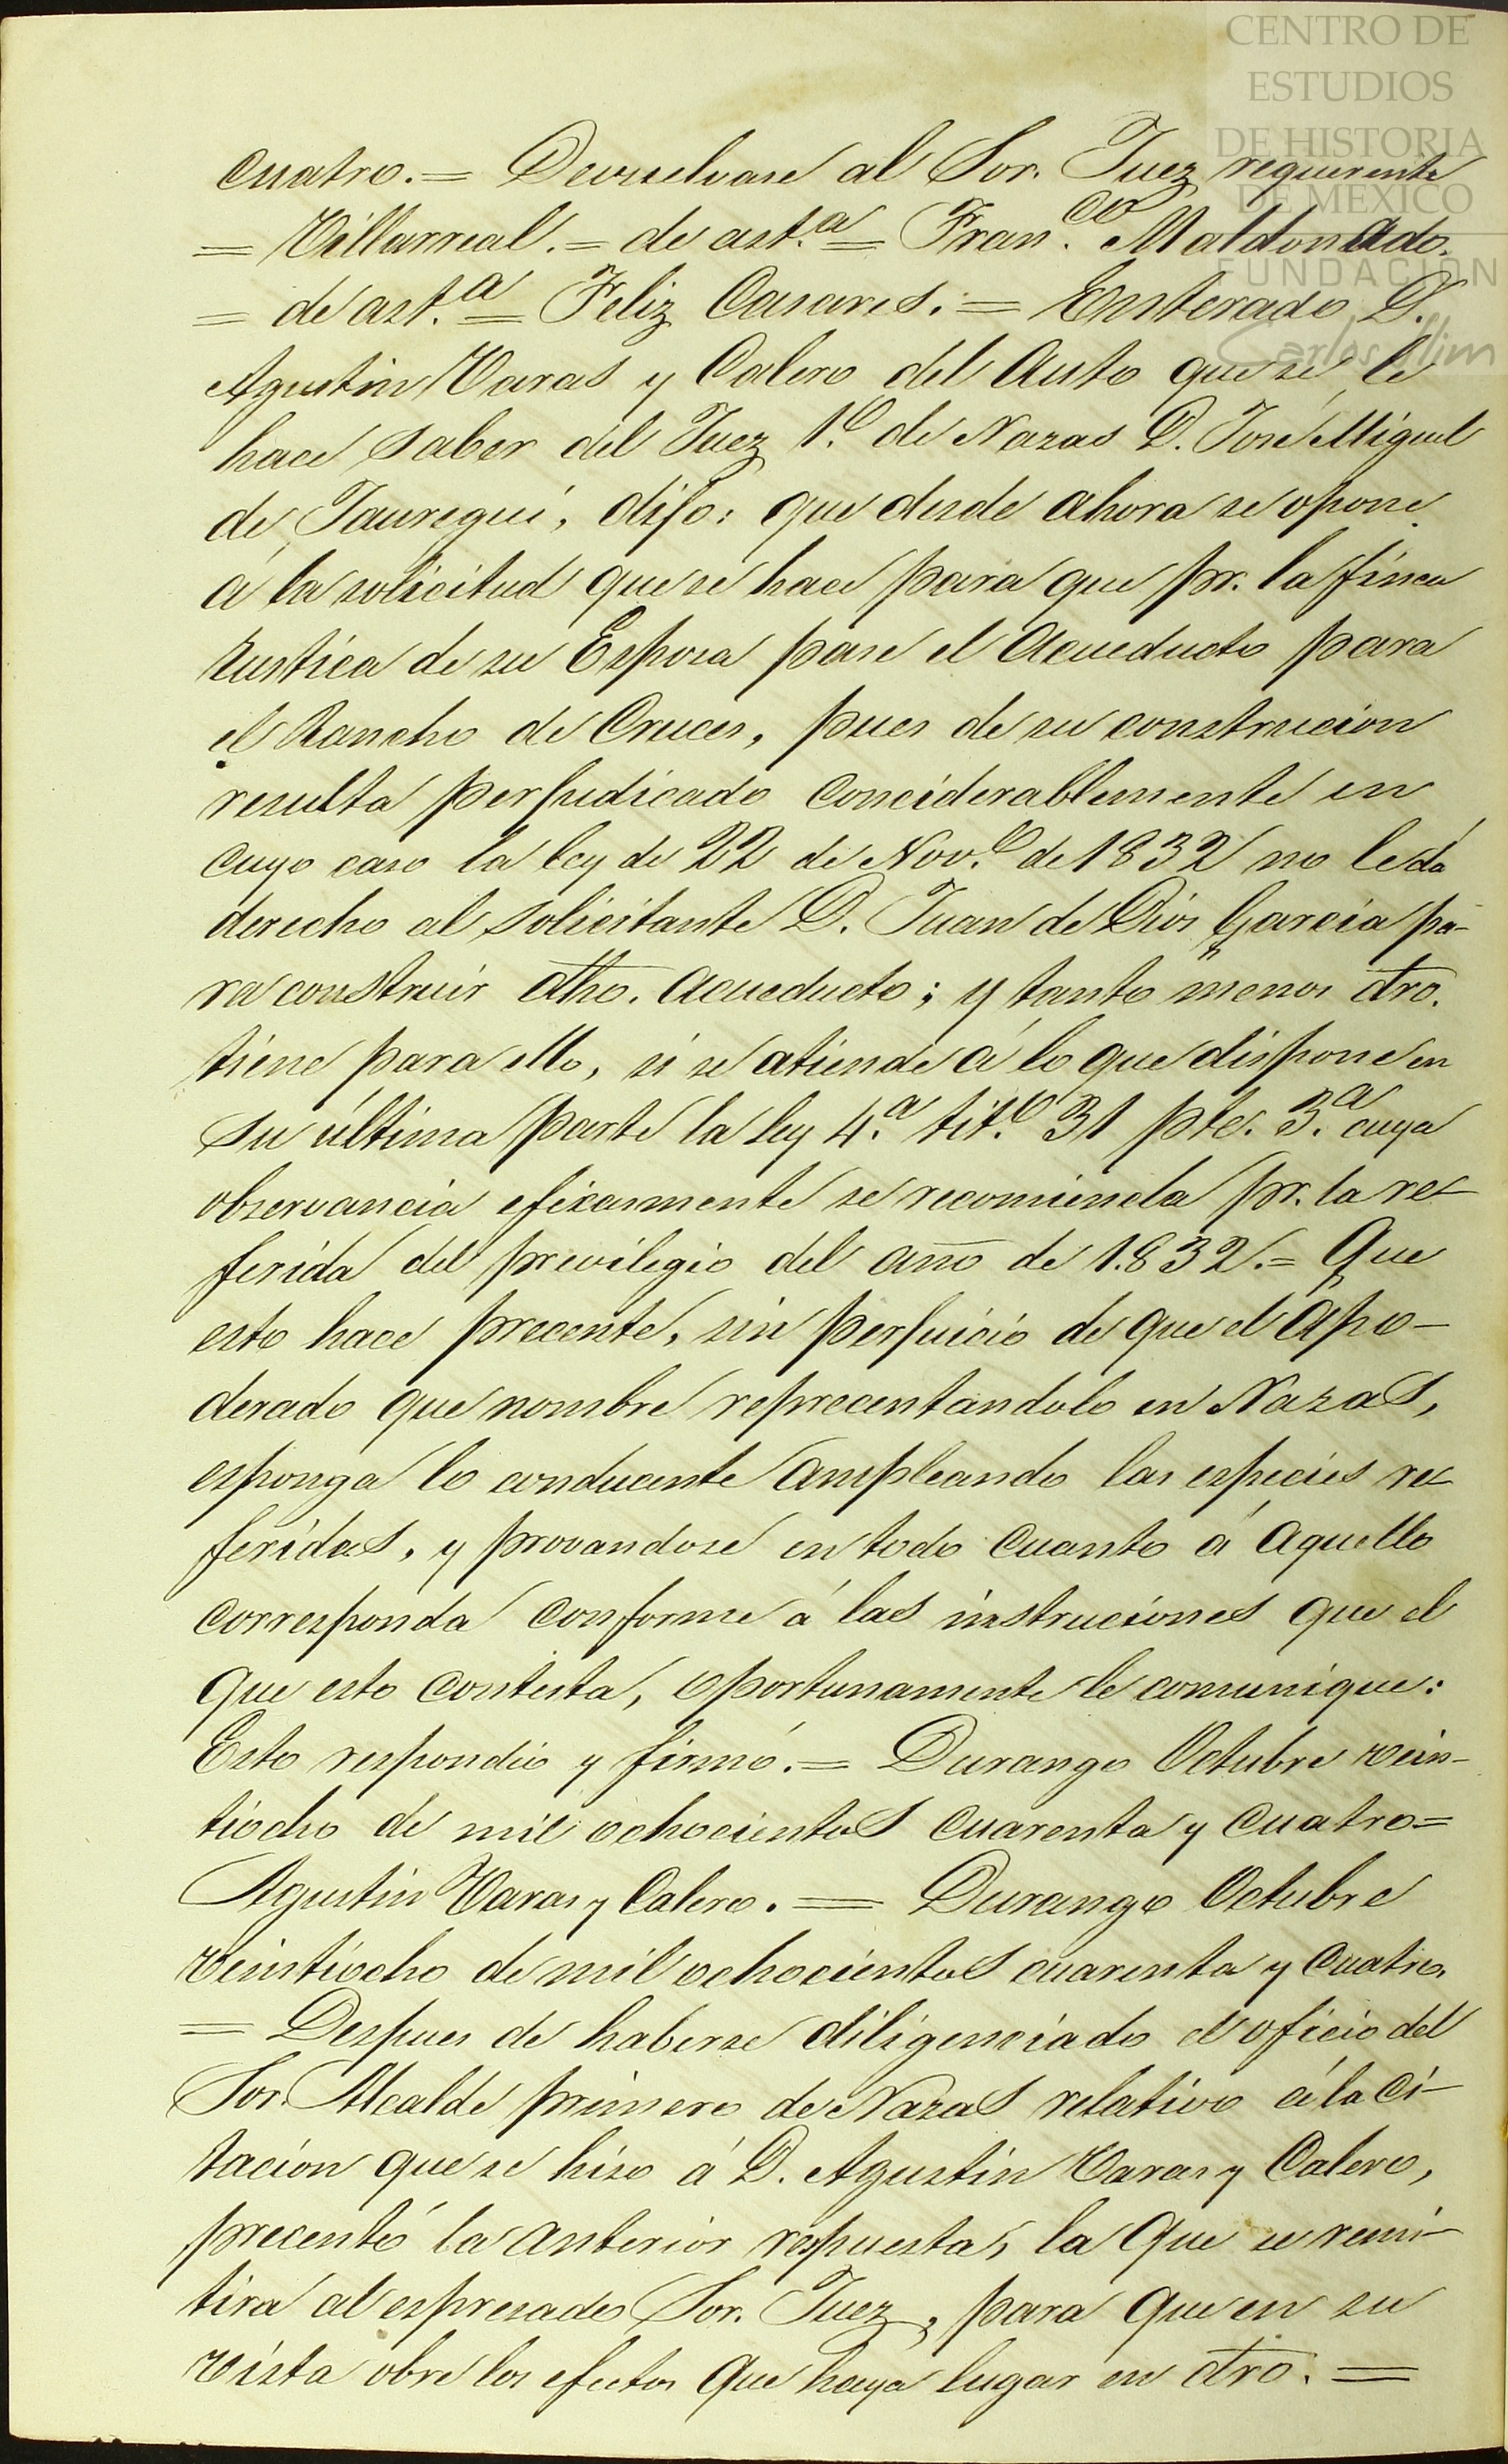 CENTRO DE
ESTUDIOS
DE HISTORIA
DE MEXICO
FUNDACIÓN
Carlos Slim
cuatro.= Devuelvase al Sor. Juez requerente
= Villarreal.= de ast.ª = Fran.co Maldonado.
= de ast.ª = Feliz Casares.= Enterado D.
Agustin Varas y Calero del Auto que se le
hace saber del Juez 1.º de Nazas D. José Miguel
de Jauregui, dijo: que desde ahora se opone
á la solicitud que se hace para que pr. la finca
rustica de su Esposa pase el Acueducto para
el Rancho de Cruces, pues de su construcion
resulta perjudicado conciderablemente en
cuyo caso la ley de 22 de Nov.e de 1832 no le dá
derecho al solicitante D. Juan de Dios Garcia pa-
ra construir dho. acueducto; y tanto menos dro.
tiene para ello, si se atiende á lo que dispone en
su última parte la ley 4.ª tit.º 31 pte. 3.ª cuya
observancia eficasmente se recomienda pr. la re-
ferida del previlegio del año de 1.832.= Que
esto hace precente, sin perjuicio de que el apo-
derado que nombre reprecentandolo en Nazas,
esponga lo conducente ampleando las especies re-
feridas, y provandose en todo cuanto á aquello
corresponda conforme á las instruciones que el
que esto contesta, oportunamente le comunique:
Esto respondio y firmó.= Durango Octubre vein-
tiocho de mil ochocientos cuarenta y cuatro=
Agustin Varas y Calero.= Durango Octubre
veintiocho de mil ochocientos cuarenta y cuatro.
= Despues de haberse diligenciado el oficio del
Sor. Alcalde primero de Nazas relativo á la ci-
tacion que se hiso á D. Agustin Varas y Calero,
precentó la anterior respuesta, la que se remi-
tira al espresado Sor. Juez, para que en su
vista obre los efectos que haya lugar en dro.=